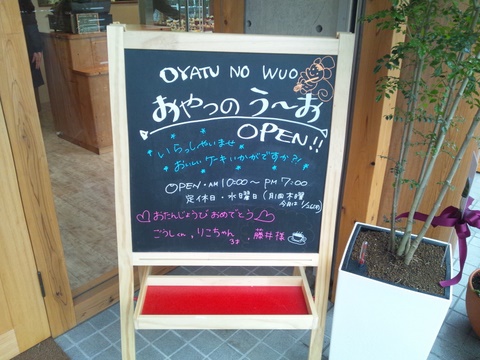 OYATU NO WUO
おやつの う〜お
OPEN!!
いらっしゃいませ
おいしいケーキいかがですか?!
OPEN・AM 10:00〜PM 7:00
定休日・水曜日(月1回木曜
今月は
おたんじょうび おめでとう
ごうしくん、りこちゃん、藤井様
3才